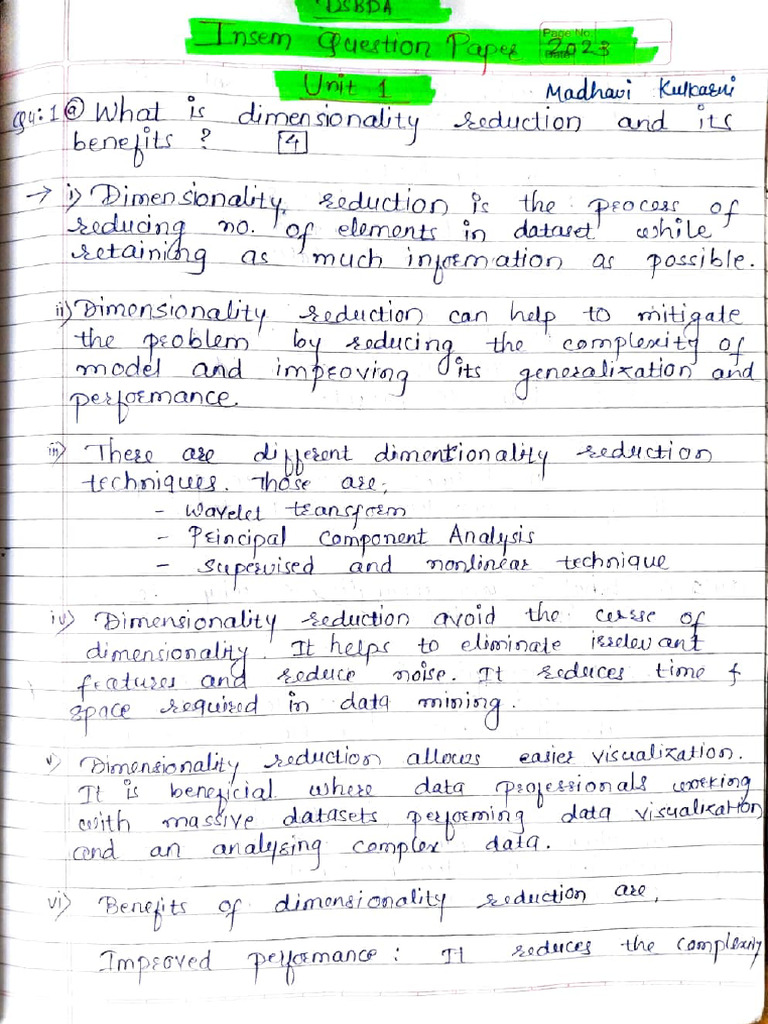 DSBDA
Insem Question Paper 2023
Page No.
Date
Unit 1
Madhavi Kulkarni
Qu:1 a What is dimensionality reduction and its
benefits ? [4]
→ i) Dimensionality reduction is the process of
reducing no. of elements in dataset while
retaining as much information as possible.
ii) Dimensionality reduction can help to mitigate
the problem by reducing the complexity of
model and improving its generalization and
performance.
iii) There are different dimentionality reduction
techniques. Those are,
- Wavelet transform
- Principal Component Analysis
- Supervised and nonlinear technique
iv) Dimensionality reduction avoid the curse of
dimensionality. It helps to eliminate irrelevant
features and reduce noise. It reduces time &
space required in data mining.
v) Dimensionality reduction allows easier visualization.
It is beneficial where data professionals working
with massive datasets performing data visualization
and an analyzing complex data.
vi) Benefits of dimensionality reduction are,
Improved performance : It reduces the complexity